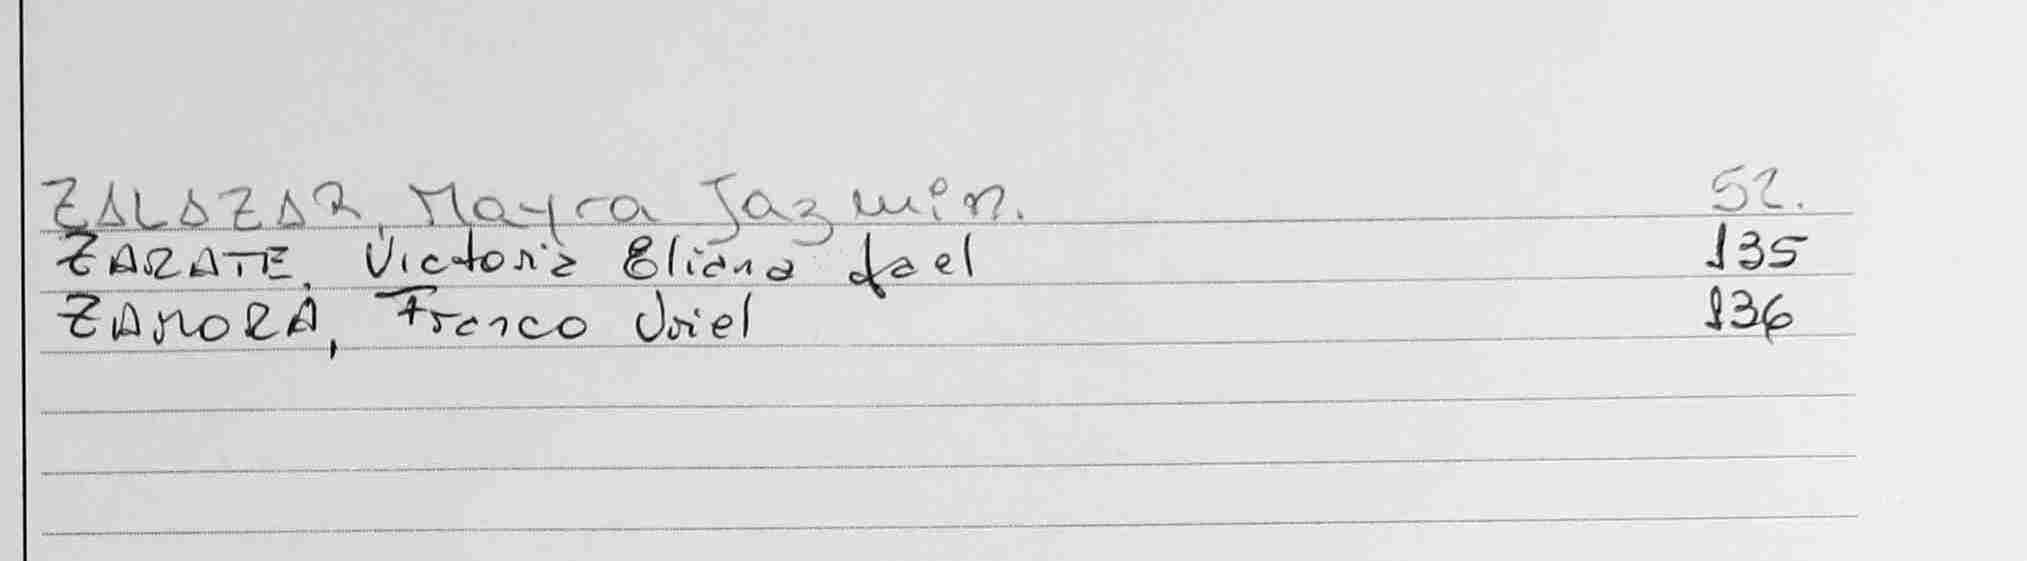 ZALAZAR, Mayra Jazmin. 52.
ZARATE, Victoria Eliana Jael 135
ZAMORA, Franco Uriel 136